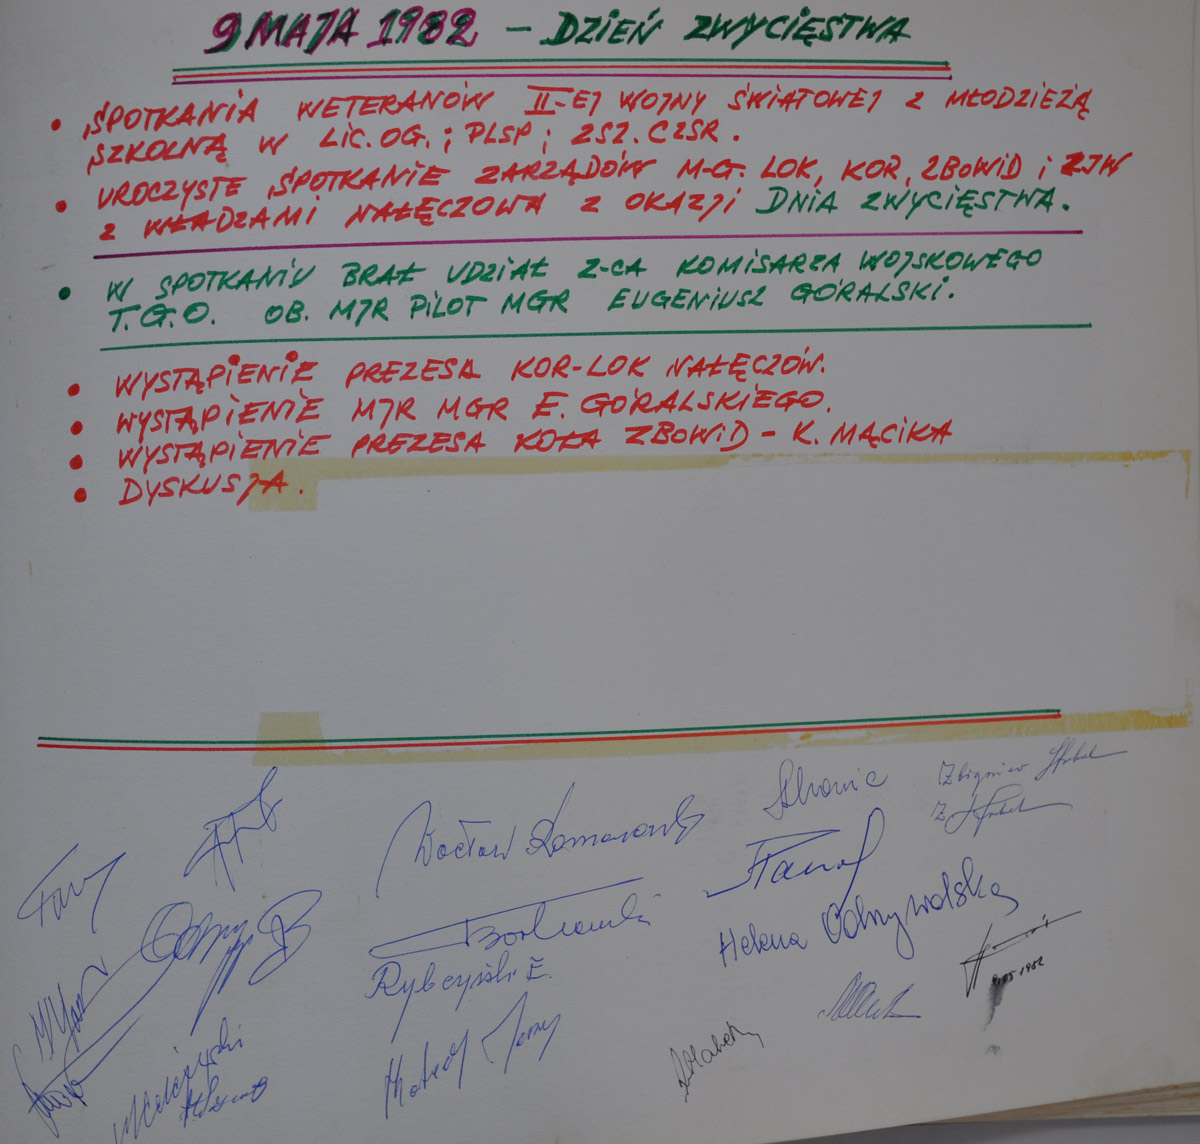 9 MAJA 1982 – DZIEŃ ZWYCIĘSTWA
• SPOTKANIA WETERANÓW II-EJ WOJNY ŚWIATOWEJ Z MŁODZIEŻĄ
SZKOLNĄ W LIC. OG.; PLSP; ZSZ. CZSR.
• UROCZYSTE SPOTKANIE ZARZĄDÓW M-G. LOK, KOR, ZBOWID i ZIW
Z WŁADZAMI NAŁĘCZOWA Z OKAZJI DNIA ZWYCIĘSTWA.
• W SPOTKANIU BRAŁ UDZIAŁ Z-CA KOMISARZA WOJSKOWEGO
T.G.O. OB. MJR PILOT MGR EUGENIUSZ GÓRALSKI.
• WYSTĄPIENIE PREZESA KOR-LOK NAŁĘCZÓW.
• WYSTĄPIENIE MJR MGR E. GÓRALSKIEGO.
• WYSTĄPIENIE PREZESA KOŁA ZBOWID – K. MĄCIKA
• DYSKUSJA.
Zbigniew
Wacław Komarowski
Helena Odrzywolska
Rybczyński E.
Jerzy